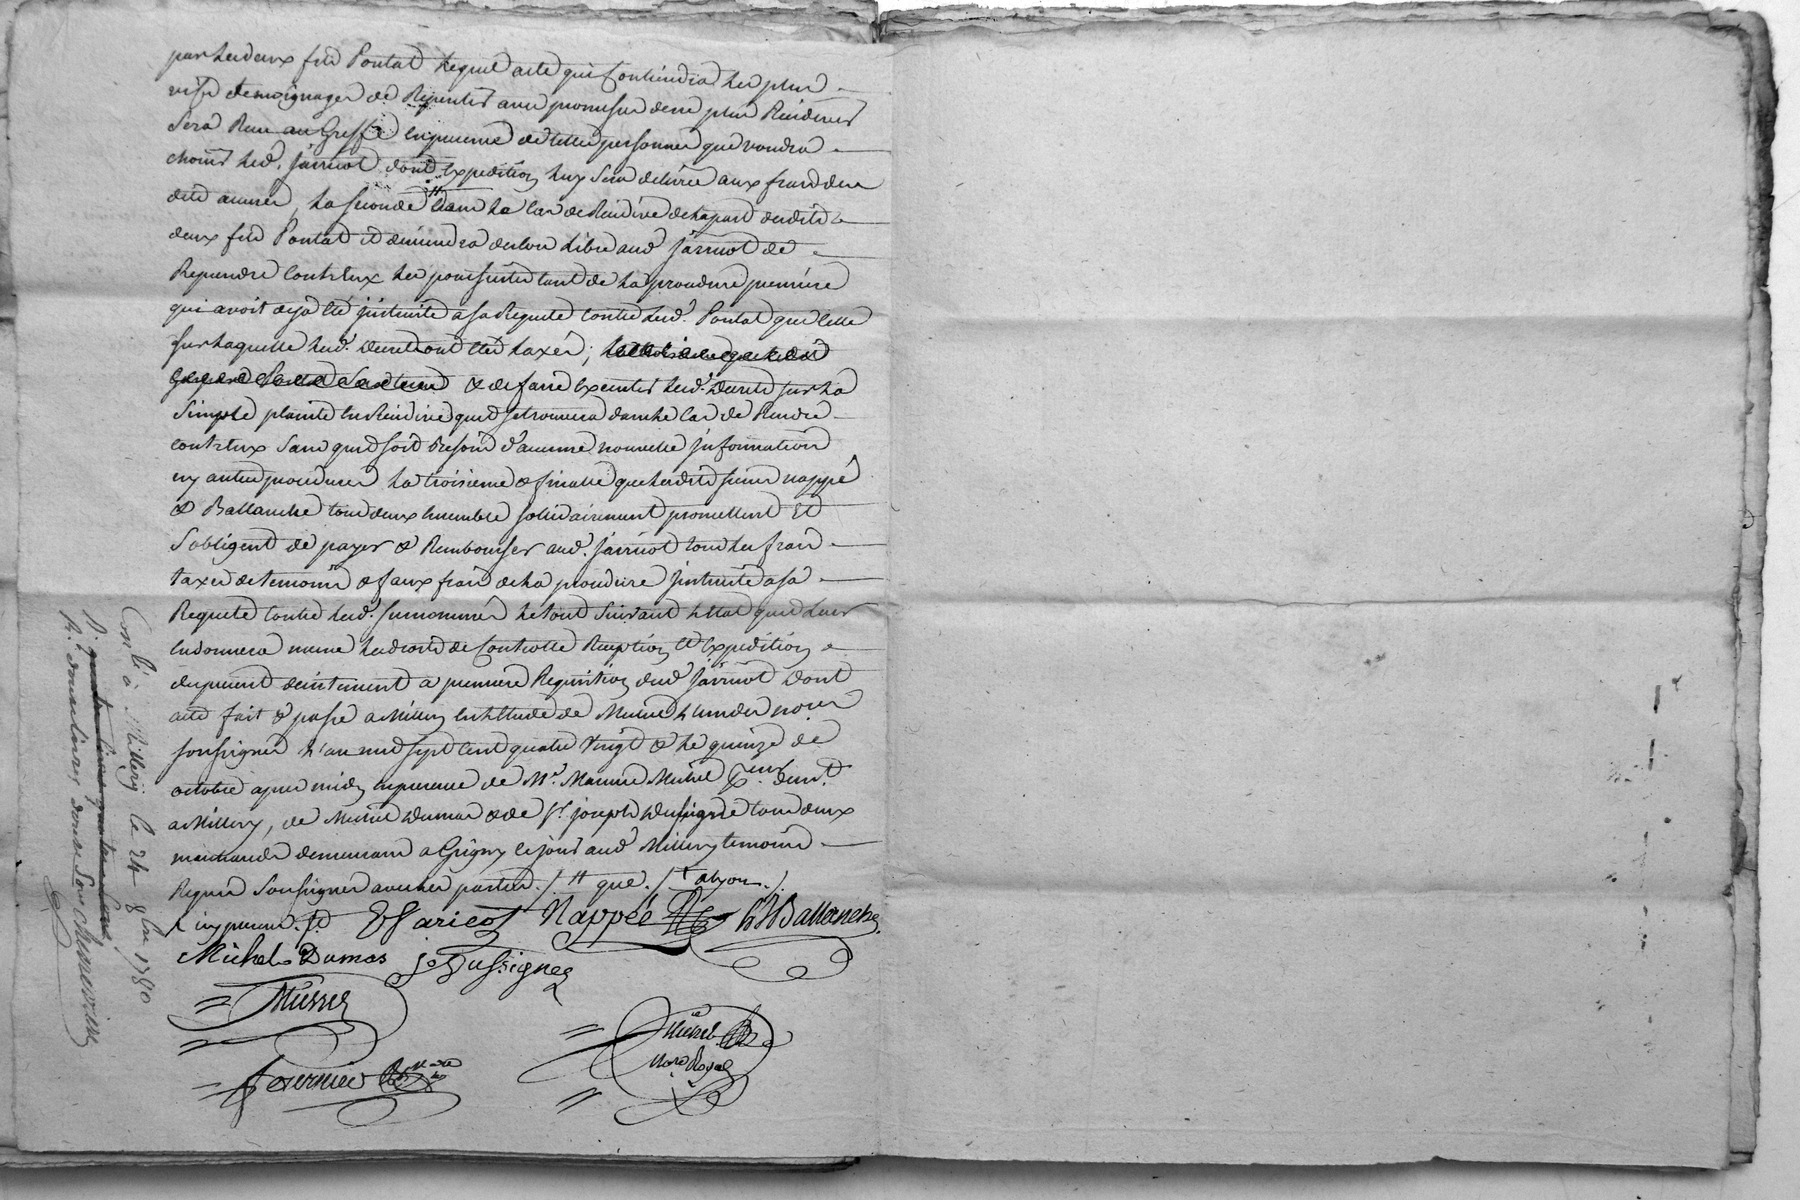 par lesdeux fils Pontat lequel acte qui Contiendra les plus
vifs temoignages de Repentir avec promesse dene plus Recidiver
Sera Recu au Greffe en presence detelles personnes que voudra
choisir led. Jarricot dont expedition luy Sera delivrée aux frais des
dits accusés, la seconde dans le Cas de Recidive delapart desdits
deux fils Pontat il deviendra deslors libre aud Jarricot de
Reprendre Contr'eux les poursuites tant de la procedure premiere
qui avoit deja été instruite a sa Requete contre lesd. Pontat que celle
sur laquelle lesd. decrets ont été laxés;
& de faire executer lesd. decrets sur la
Simple plainte en Recidive quil setrouvera dans le Cas de Rendre
contr'eux Sans quil soit Besoin d'aucune nouvelle information
ny autres procedures la troisieme & finalle que lesdits sieurs nappé
& Ballanche tous deux ensemble sollidairement promettent Et
S'obligent de payer & Rembourser aud. Jarricot tous les frais
taxes de temoins & faux frais de la procedure instruite a sa
Requete contre lesd. susnommés le tout Suivant l'Etat quil leur
endonnera meme les droits de Controlle Reception et Expedition
du present desistement a premiere Requisition dud Jarricot dont
acte fait & passé a Millery en l'Etude de Michel l'un des nores
soussignes l'an mil sept cent quatre vingt & le quinze de
octobre apres midy en presence de Mr. Maurice Michel
a Millery, de Michel Dumas & de Sr. joseph Dussigne tous deux
marchands demeurans a Grigny lejour aud Millery temoins
Requis Soussignes avec les parties ./. # que ./.
en presence ./.
Jaricot Nappée Ballanche
Michel Dumas Jo Dussigne
Fournier
Michel
Nore Royal
Conlé à Millery le 24 8bre 1780
R. douze livres douze Sous